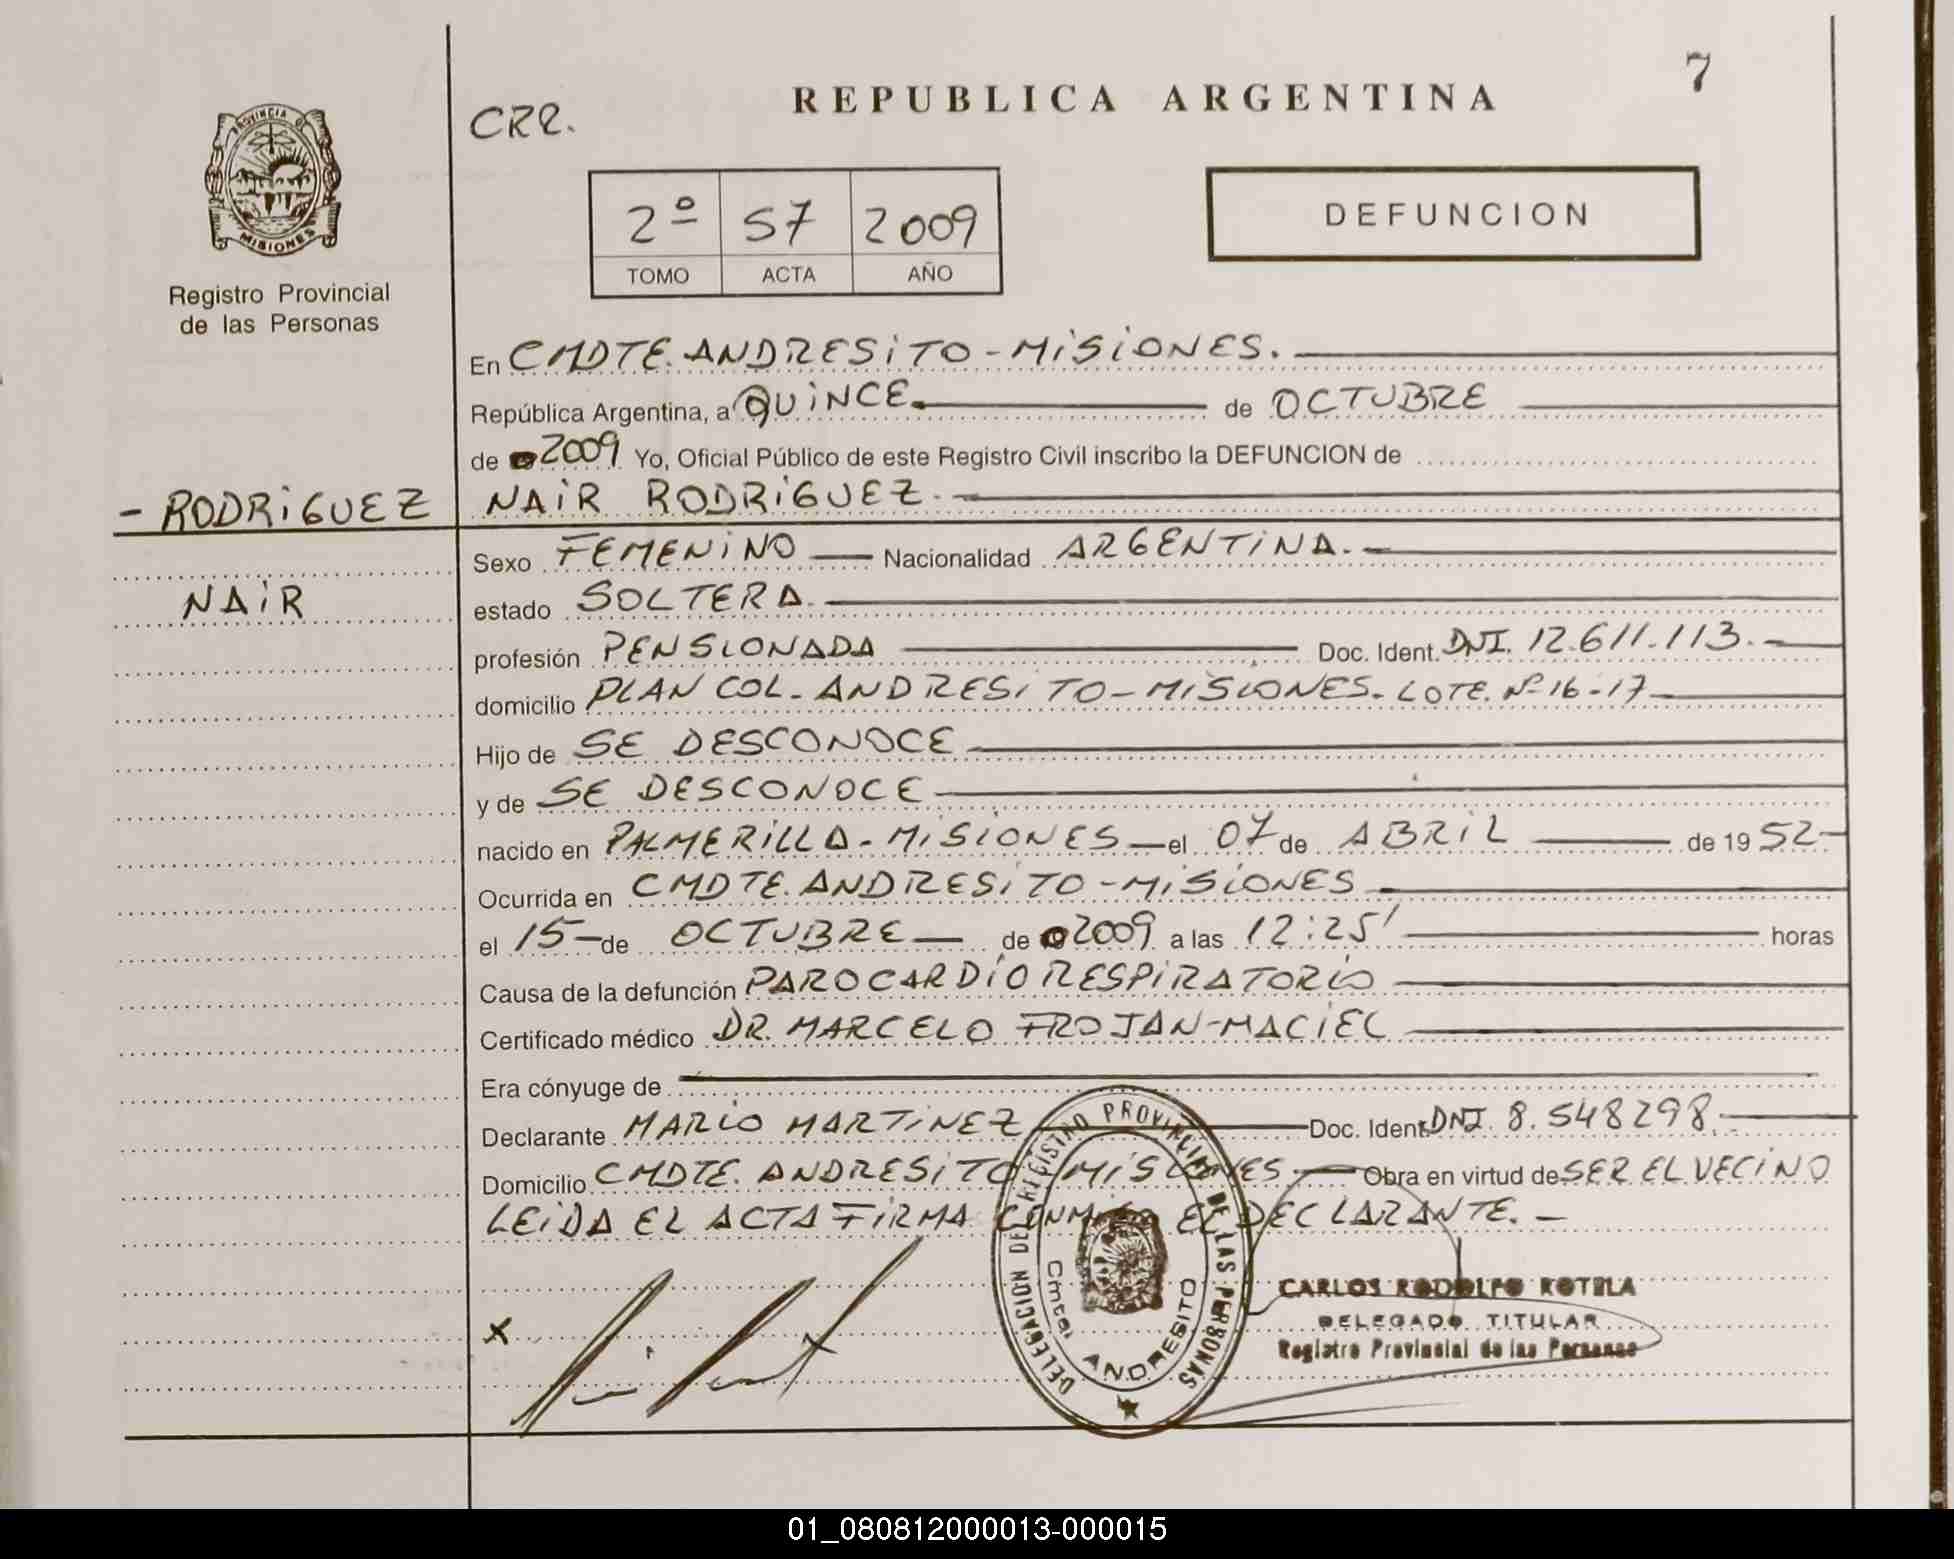 7
REPUBLICA ARGENTINA
CRR.
PROVINCIA DE
MISIONES
2º 57 2009
TOMO ACTA AÑO
DEFUNCION
Registro Provincial
de las Personas
En CMDTE. ANDRESITO - MISIONES.
República Argentina, a QUINCE. de OCTUBRE
de 2009 Yo, Oficial Público de este Registro Civil inscribo la DEFUNCION de
- RODRIGUEZ NAIR RODRIGUEZ.
Sexo FEMENINO Nacionalidad ARGENTINA.
NAIR
estado SOLTERA.
profesión PENSIONADA Doc. Ident. DNI. 12.611.113.-
domicilio PLAN COL. ANDRESITO - MISIONES. LOTE. Nº 16-17
Hijo de SE DESCONOCE
y de SE DESCONOCE
nacido en PALMERILLA - MISIONES el 07 de ABRIL de 1952-
Ocurrida en CMDTE. ANDRESITO - MISIONES
el 15 - de OCTUBRE de 2009 a las 12:25' horas
Causa de la defunción PAROCARDIORESPIRATORIO
Certificado médico DR. MARCELO FROJAN-MACIEL
Era cónyuge de
Declarante MARIO MARTINEZ Doc. Ident. DNI. 8.548298.
Domicilio CMDTE. ANDRESITO MISIONES. Obra en virtud de SER EL VECINO
LEIDA EL ACTA FIRMA CONMIGO EL DECLARANTE. -
DELEGACION DE REGISTRO PROVINCIAL DE LAS PERSONAS
Cmte. ANDRESITO
X
CARLOS RODOLFO ROTELA
DELEGADO TITULAR
Registro Provincial de las Personas
01_080812000013-000015